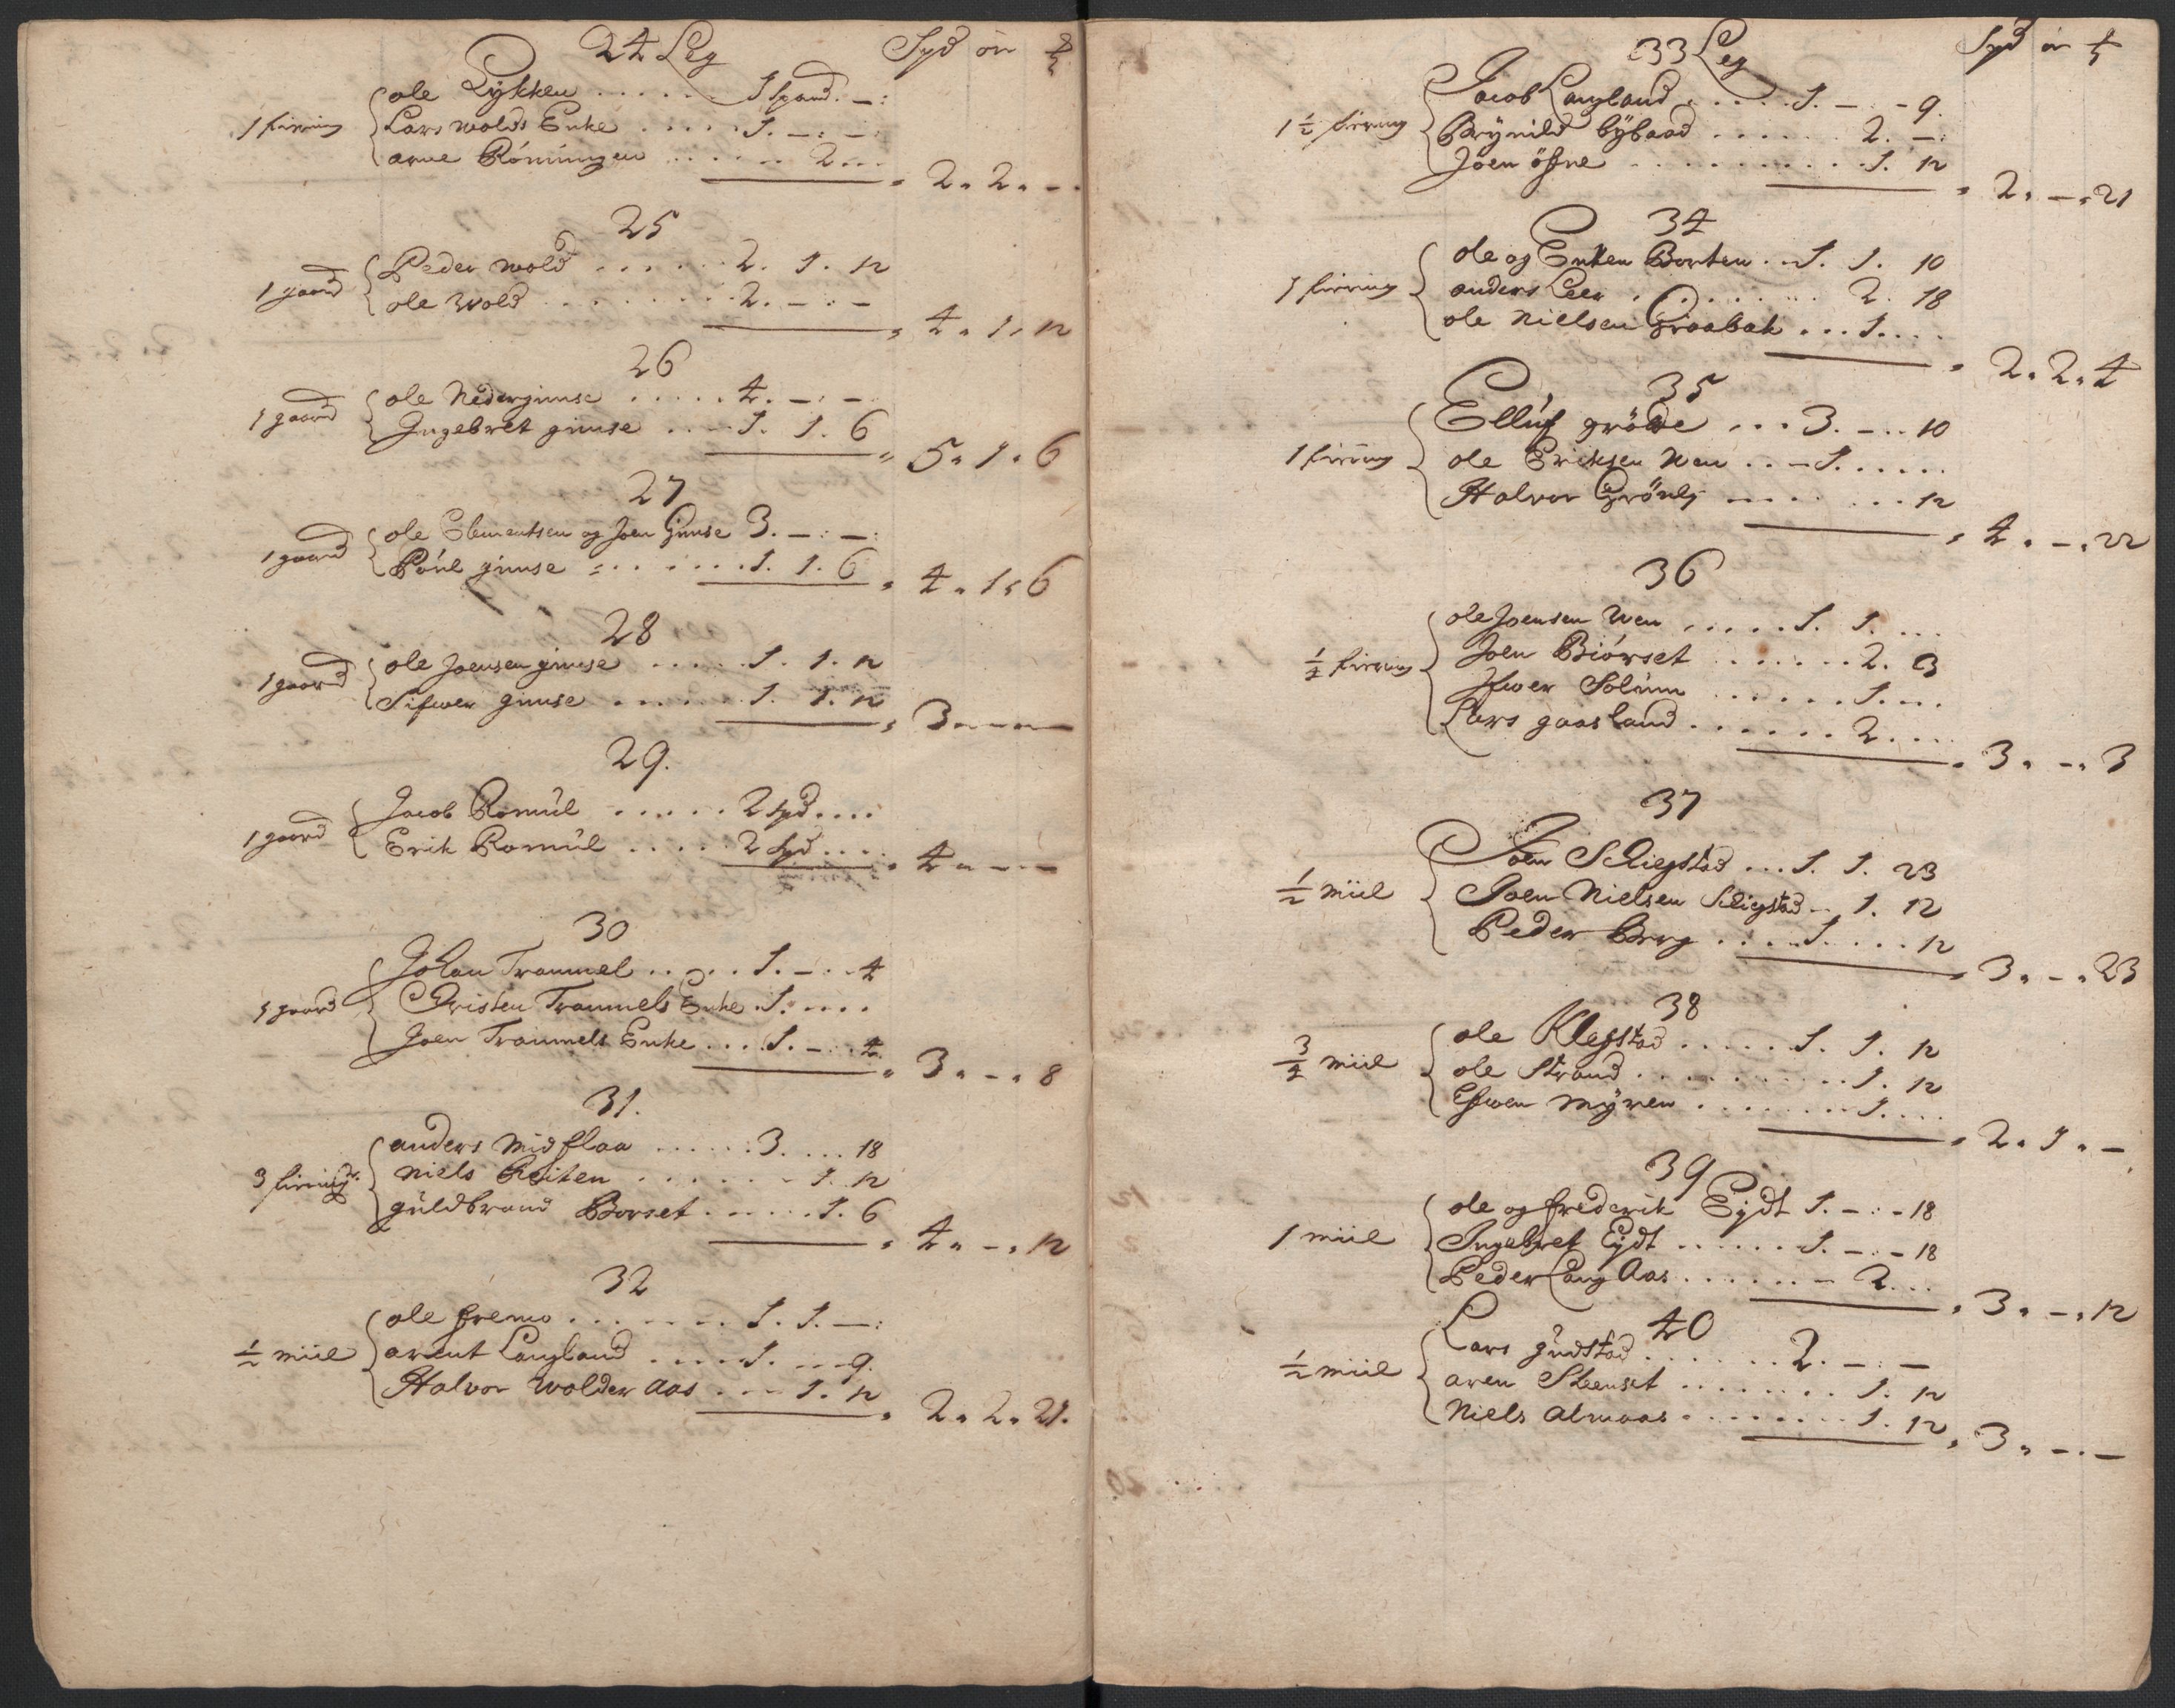 24 Leg Spd ör
ole Lykken . . . . . 1 Spand. —:
1 firring Lars wolds Enke . . . . 1. —: —
arne Róningen . . . . . 2 . . .
2 " 2 " —
25
Peder wold . . . . . . 2. 1. 12
1 gaard ole wold . . . . . . . . 2. — : —
4 " 1 " 12
26
1 gaard ole Nedergimse . . . . . 4. —: —
Ingebret gimse . . . 1. 1. 6
5 " 1 " 6
27
1 gaard ole Clementsen og Joen Gimse 3. — : —:
Póul gimse . . . . . . 1. 1. 6
4 " 1 " 6
28
1 gaard ole Joensen gimse . . . . . 1. 1. 12
Sifwer gimse . . . . . 1. 1. 12
3 " — " —
29.
Jacob Romúl . . . . . 2 spd . . . .
1 gaard Erik Romúl . . . . . 2 spd . . . .
4 " — —
30
Johan Trammel . . . . . 1. — . . 4
1 gaard Christen Trammels Enke . 1. . . . .
Joen Trammels Enke . . . 1. — . . 4
3 " — " 8
31.
anders Midflaa . . . . . . 3. . . . 18
3 firringr. Niels Reiten . . . . . . . 1. 12
gúldbrand Borset . . . . . 1. 6
4 " — " 12
32
ole fremo . . . . . . . 1. 1. —:
½ miil arent Langland . . . . 1. . . . 9.
Halvor wolder Aas . . . 1. 12
2 " 2 " 21.
33 Leg Spd ör
Jacob Langland . . . . . 1. — . – 9.
1 ½ firring Brynild bÿbaad . . . . . . 2. —:
Joen öfne . . . . . . . . . 1. 12
2 " — " 21
34
ole og Enken Borten . . 1. 1. 10
1 firring anders Leer . . . . . . . . . 2. 18
ole Nielsen Graabak . . . 1. . . .
2 " 2 " 4
35
Ellúf gröde . . . 3. — . . 10
1 firring ole Ericksen Wen . . – 1. . . . . .
Halvor Grönli . . . . . . . 12
4 " — " 22
36
ole Joensen Wen . . . . . 1. 1. . . .
½ firring Joen Biórset . . . . . . . 2. 3
Ifwer Solúm . . . . . . 1. . . .
Lars gaasland . . . . . . 2. . . .
3 " — " 3
37
Joen Schiegstad . . . 1. 1. 23
½ miil Joen Nielsen Schiegstad – 1. 12
Peder Berg . . . . 1. . . . 12
3 " — " 23
38
ole Klegstad . . . . . 1. 1. 12
¾ miil ole Strand . . . . . . . . . 1. 12
Efwen Mÿren . . . . . . . 1. . . .
2 " 1 " —
39
ole og frederik Eÿdt 1. — : – 18
1 miil Ingebret Eÿdt . . . . . . 1. — . – 18
Peder Lang Aas . . . . . . – 2. . .
3 " — " 12
40
Lars gúdstad . . . . . . . 2. — : —
½ miil aren Steenset . . . . . . . 1. 12
Niels almaas . . . . . . . . 1. 12
3 " — . —